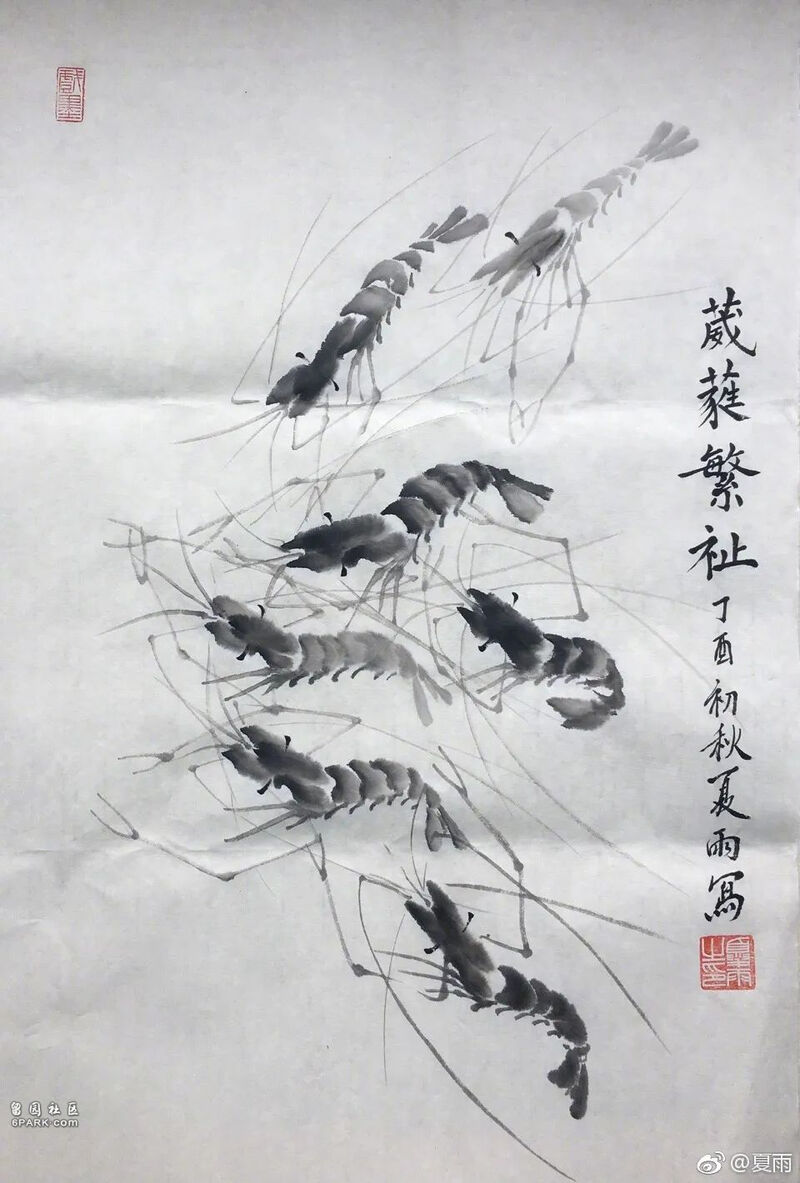 戲墨
葳蕤繁祉
丁酉初秋夏雨寫
夏雨之印
留园社区
6PARK.com
@夏雨